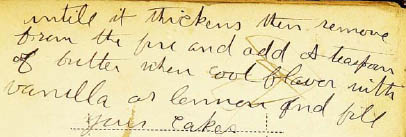 untile it thickens then remove
from the fire and add 1 teaspoon
of butter when cool flavor with
vanilla or lemmon and fill
your cakes